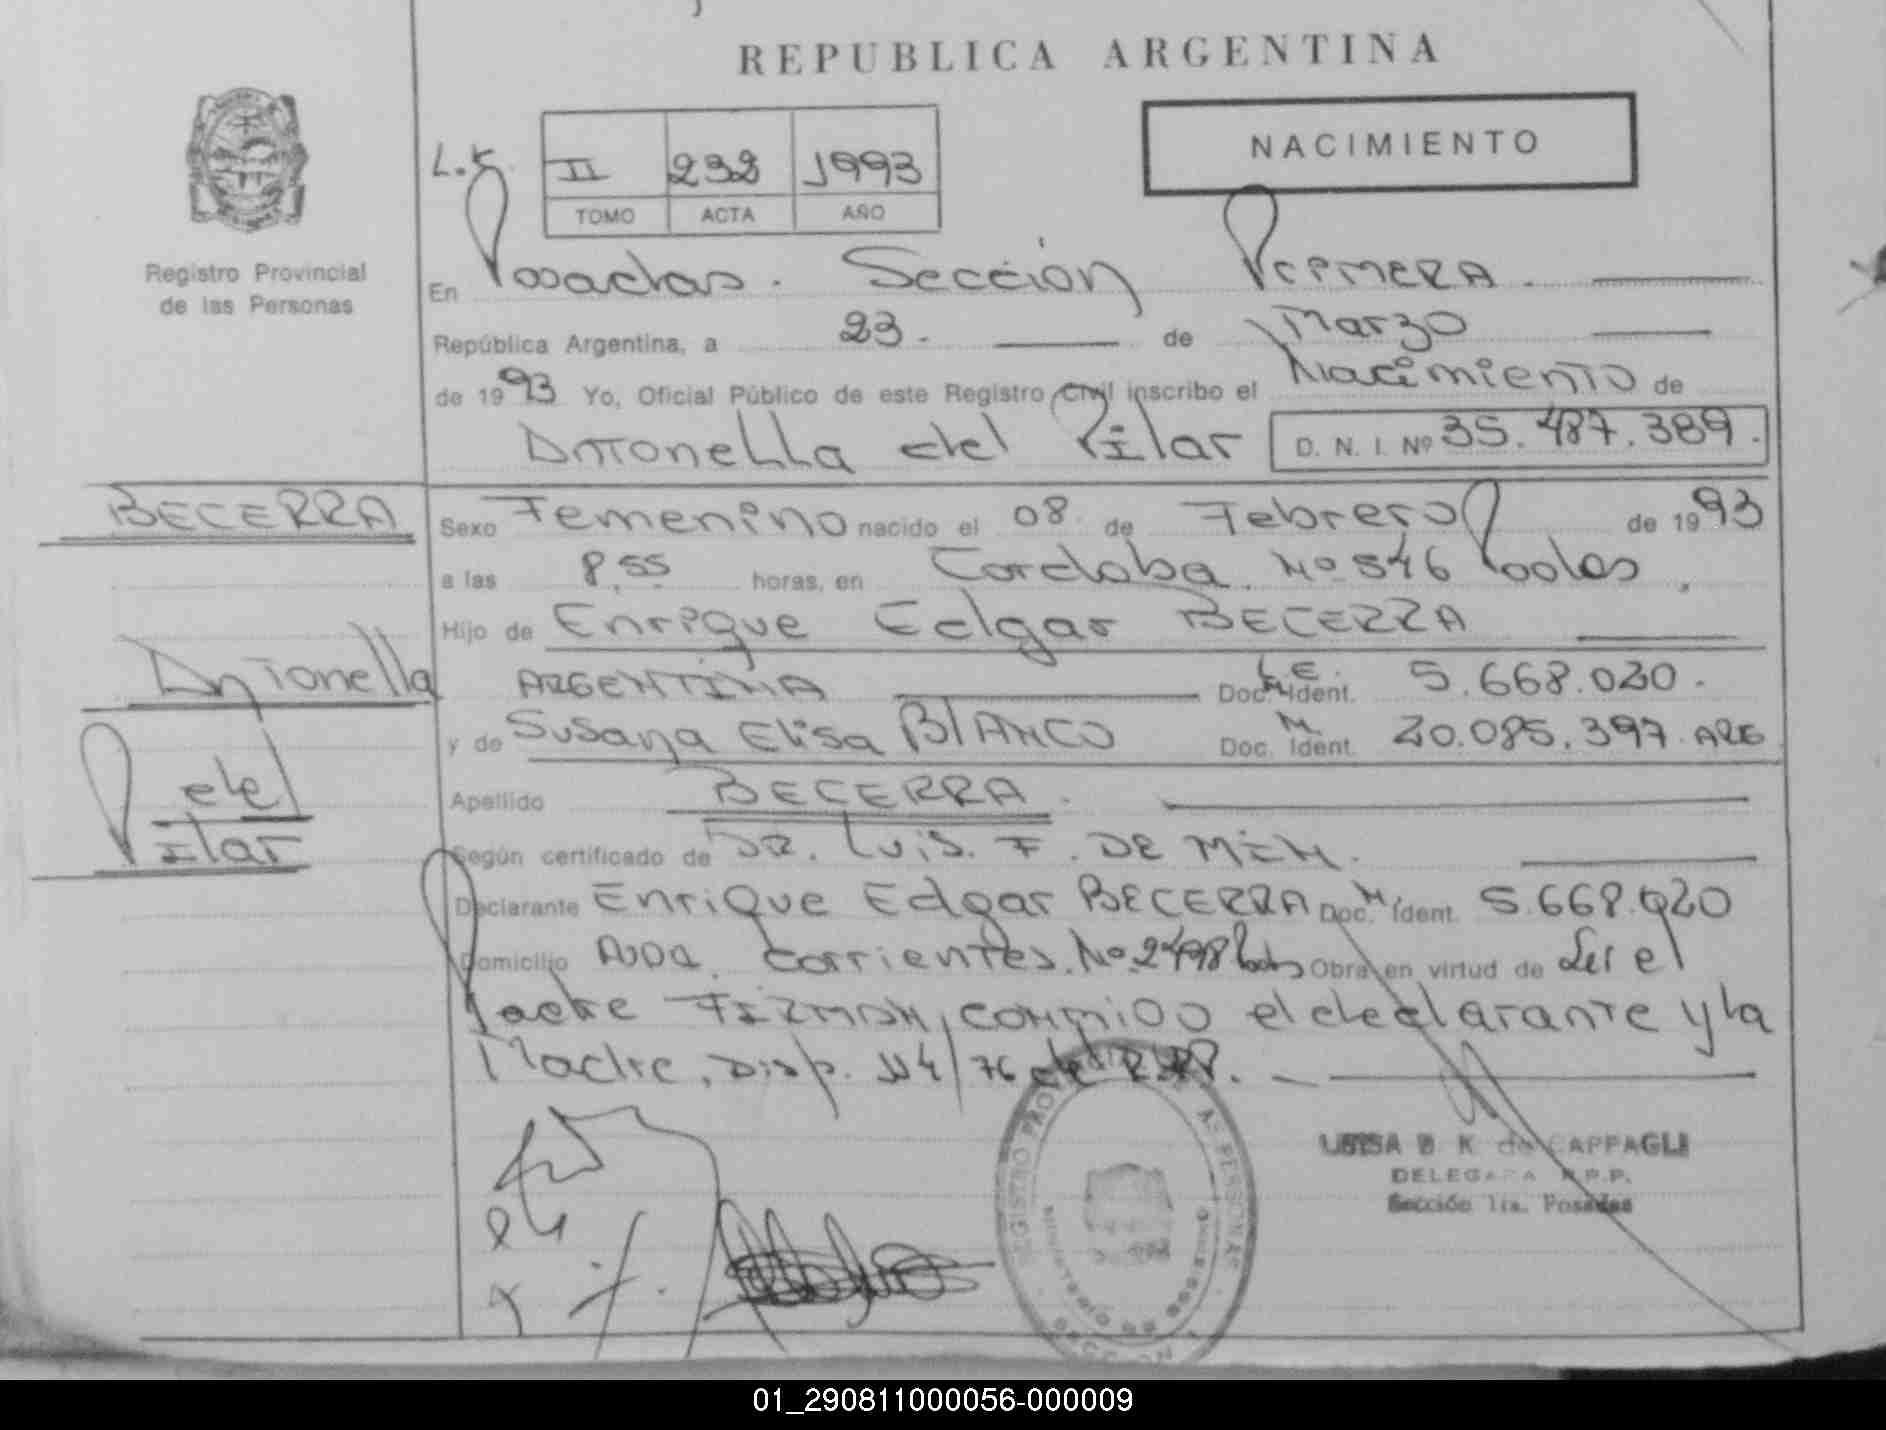 REPUBLICA ARGENTINA
NACIMIENTO
L.K.
II 232 1993
TOMO ACTA AÑO
Registro Provincial
de las Personas
En Posadas. Sección Primera.
República Argentina, a 23. de Marzo
de 1993 Yo, Oficial Público de este Registro Civil inscribo el Nacimiento de
Antonella del Pilar D. N. I. Nº 35.487.389.
BECERRA
Sexo Femenino nacido el 08 de Febrero de 1993
a las 8,55 horas, en Cordoba Nº 546 Pdas.
Hijo de Enrique Edgar BECERRA
Antonella
ARGENTINA L.E. Doc. Ident. 5.668.020.
y de Susana Elisa BLANCO Doc. M. Ident. 20.085.397 ARG
del
Pilar
Apellido BECERRA.
Según certificado de DR. Luis. F. DE
Declarante Enrique Edgar BECERRA Doc. M. Ident. 5.668.020
Domicilio Avda. Corrientes. Nº 2498 Pdas Obra en virtud de Ser el
Padre FIRMAN, conmigo el declarante y la
Madre, Disp. 114/76 del R.P.P.
REGISTRO PROV AS PERSONAS
MINISTERIO DE GOBIERNO
SECCION 1
LUISA B K de CAPPAGLI
DELEGADA R.P.P.
Sección 1ra. Posadas
01_290811000056-000009